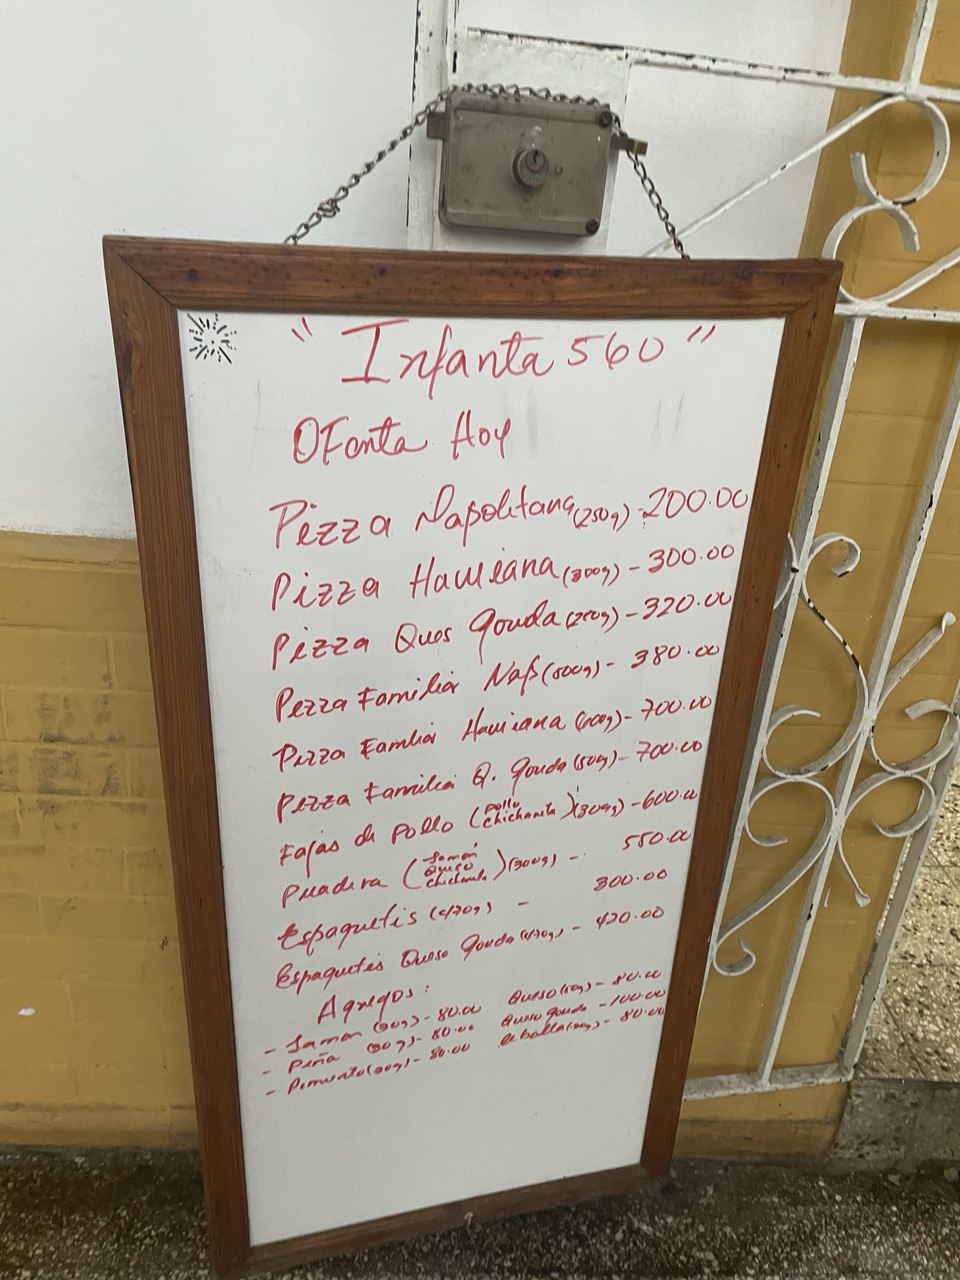 " Infanta 560 "
OFanta Hoy
Pizza Napolitana (250g) - 200.00
Pizza Hawiana (300g) - 300.00
Pizza Ques Gouda (250g) - 320.00
Pizza Familiar Nap (500g) - 380.00
Pizza Familiar Hawiana (600g) - 700.00
Pizza Familiar Q. Gouda (50g) - 700.00
Fajas de pollo (pollo chicharrita) (300g) - 600.00
(Jamon Queso) (300g) - 550.00
Espaguetis (470g) - 300.00
Espaguetis Queso Gouda (470g) - 420.00
Agregos:
- Jamon (30g) - 80.00 Queso (50g) - 80.00
- Piña (30g) - 80.00 Queso gouda - 100.00
- Pimiento (30g) - 80.00 - 80.00